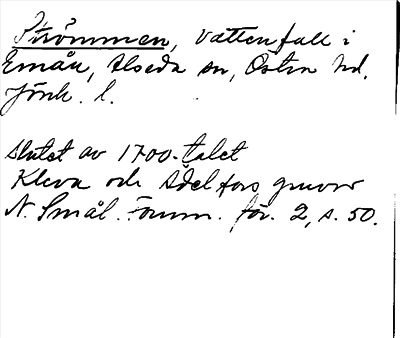 Strömmen, vattenfall i
Emån, Alseda sn, Östra hd.
Jönk. l.
slutet av 1700-talet
Kleva och Ädelfors gruvor
N. Smål. Fornm. för. 2, s. 50.